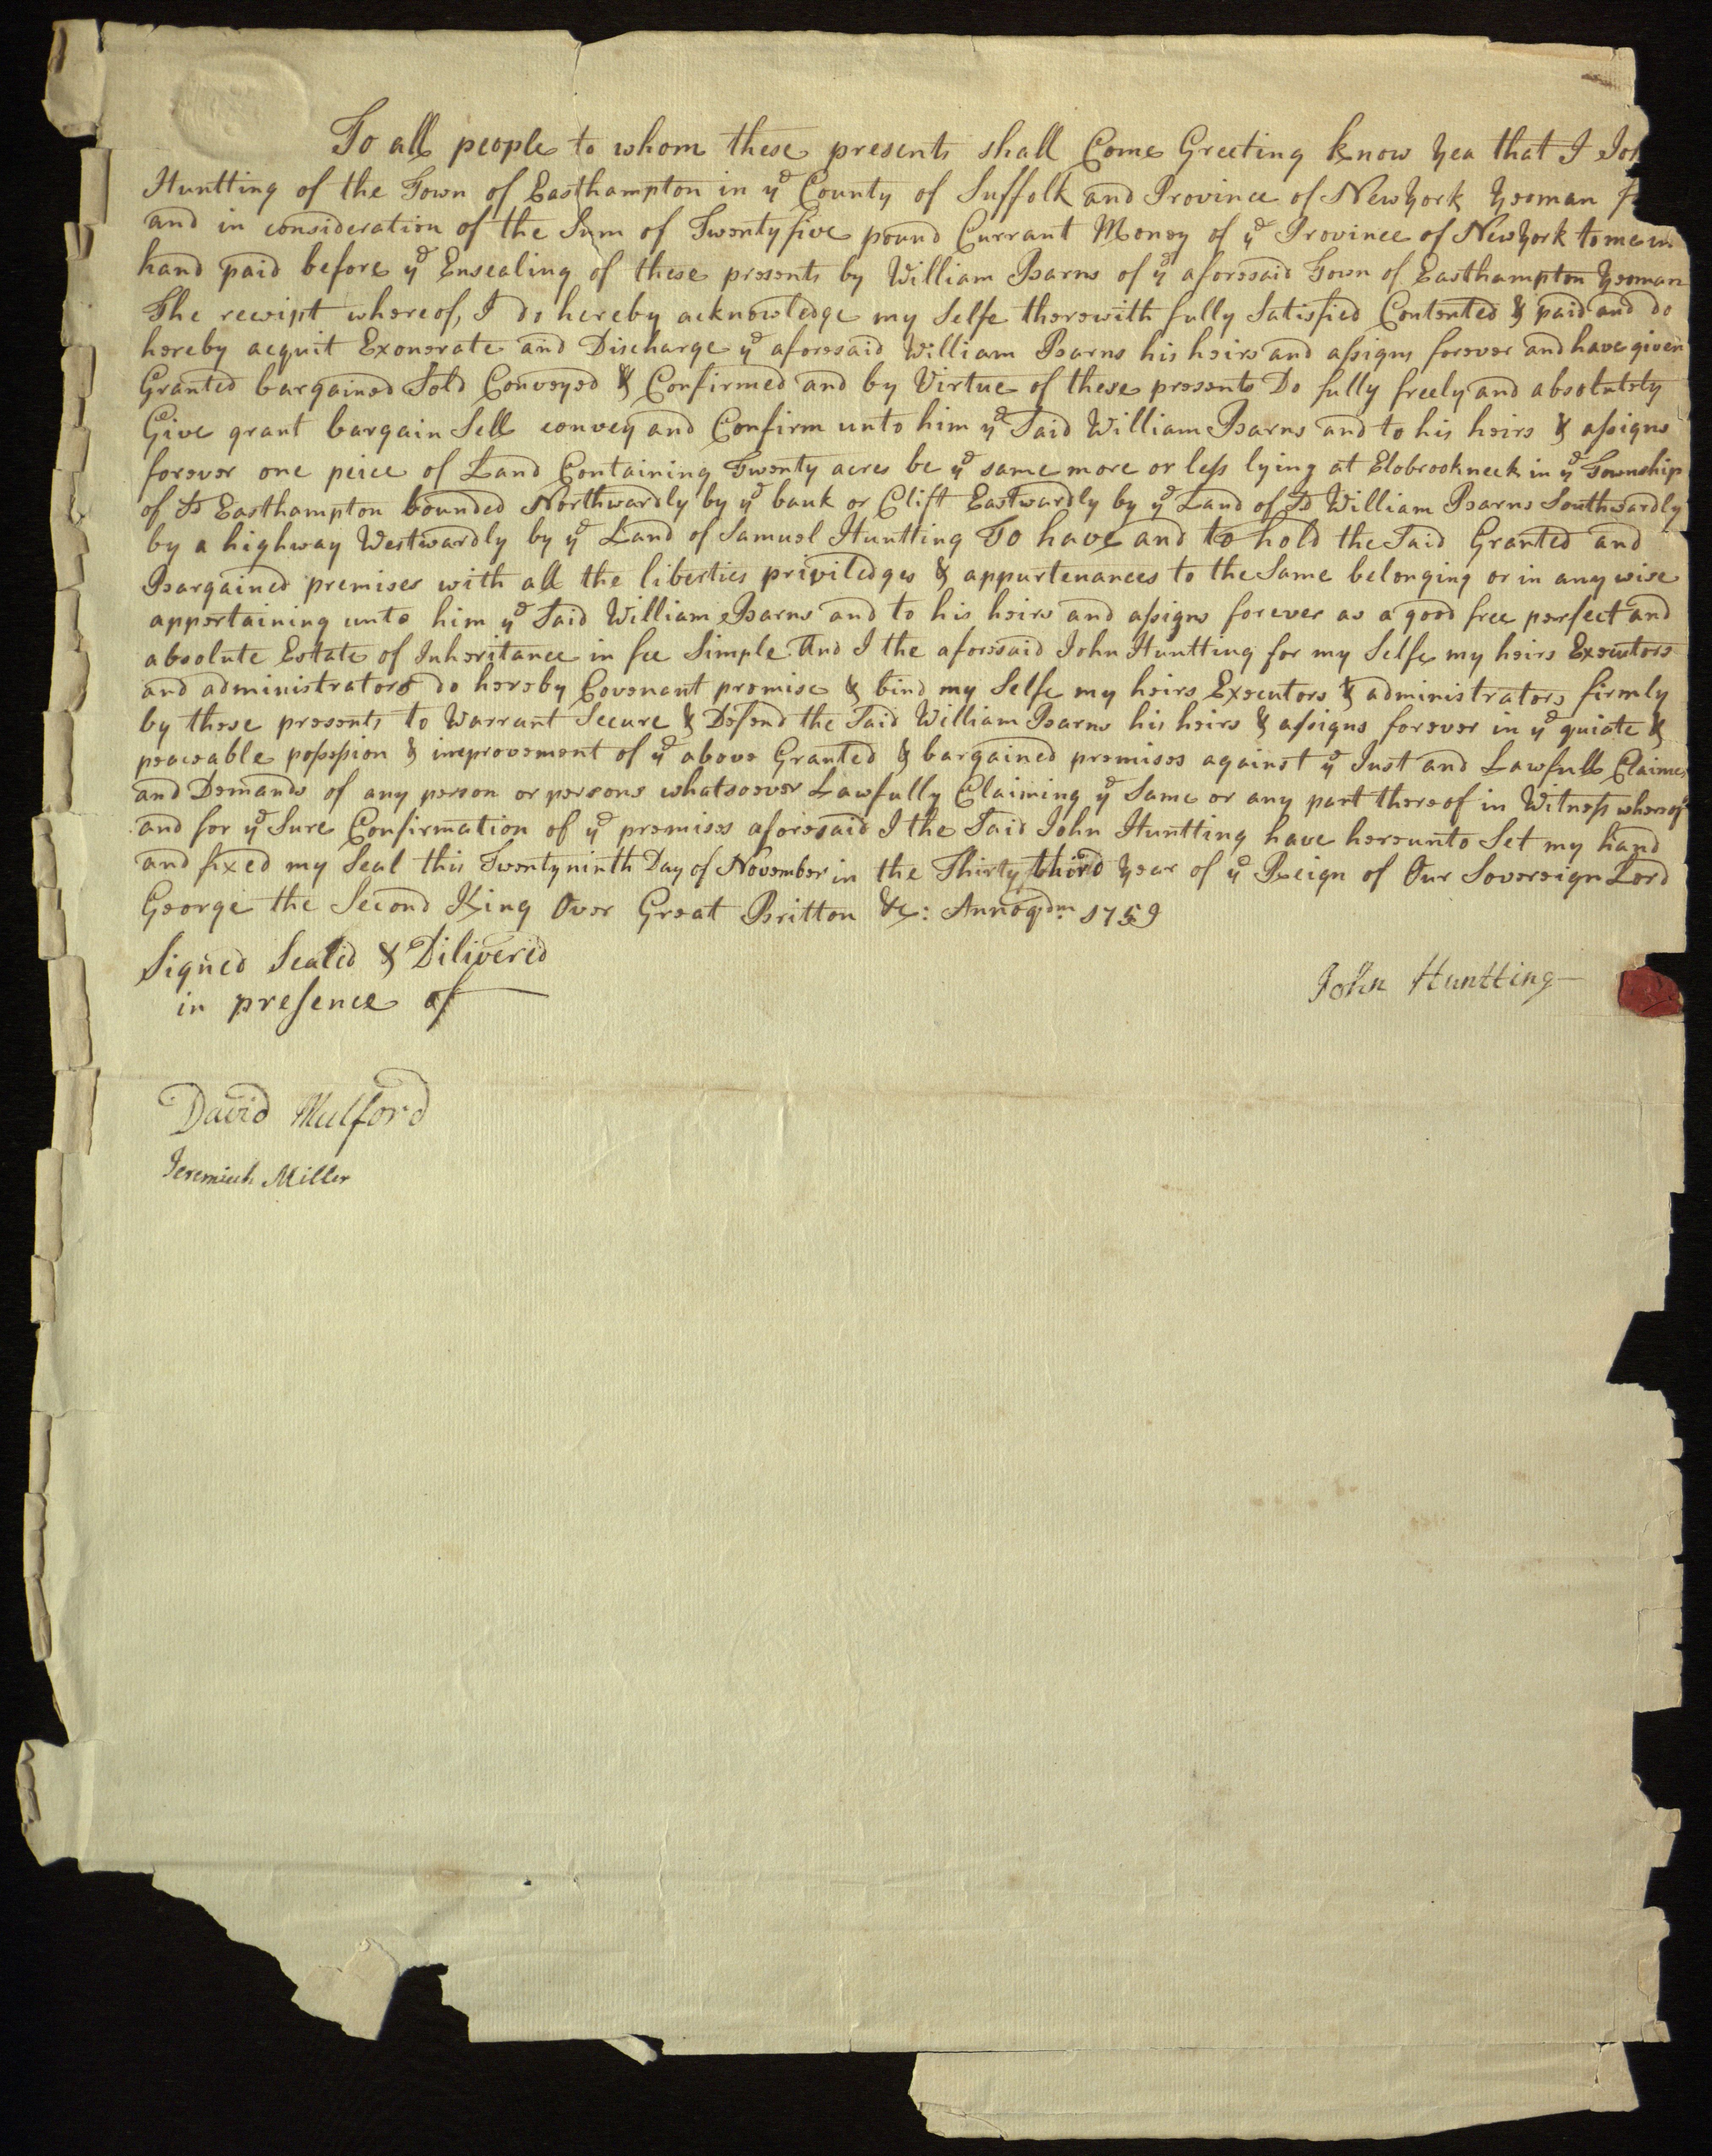 To all people to whom these presents shall Come Greeting know yea that I Joh
Huntting of the Town of Easthampton in yᵉ County of Suffolk and Province of NewYork yeoman f
and in consideration of the Sum of Twentyfive pound Currant Money of yᵉ Province of NewYork to me in
hand paid before yᵉ Ensealing of these presents by William Barns of yᵉ aforesaid Town of Easthampton yeoman
The receipt whereof, I do hereby acknowledge my Selfe therewith fully Satisfied Contented & paid and do
hereby acquit Exonerate and Discharge yᵉ aforesaid William Barns his heirs and assigns forever and have given
Granted bargained Sold Conveyed & Confirmed and by Virtue of these presents Do fully freely and absolutely
Give grant bargain Sell convey and Confirm unto him yᵉ Said William Barns and to his heirs & assigns
forever one peice of Land Containing Twenty acres be yᵉ same more or less lying at in yᵉ Township
of sd Easthampton bounded Northwardly by yᵉ bank or Clift Eastwardly by yᵉ Land of sd William Barns Southwardly
by a highway Westwardly by yᵉ Land of Samuel Huntting To have and to hold the Said Granted and
Bargained premises with all the liberties priviledges & appurtenances to the Same belonging or in any wise
appertaining unto him yᵉ Said William Barns and to his heirs and assigns forever as a good free perfect and
absolute Estate of Inheritance in fee Simple And I the aforesaid John Huntting for my Selfe my heirs Executors
and administrators do hereby Covenant promise & bind my Selfe my heirs Executors & administrators firmly
by these presents to Warrant Secure & Defend the Said William Barns his heirs & assigns forever in yᵉ quiate &
peaceable possession & improvement of yᵉ above Granted & bargained premises against yᵉ Just and Lawfull Claimes
and Demands of any person or persons whatsoever Lawfully Claiming yᵉ Same or any part thereof in Witness whereof
and for yᵉ Sure Confirmation of yᵉ premises aforesaid I the Said John Huntting have hereunto Set my hand
and fixed my Seal this Twentyninth Day of November in the Thirty third year of yᵉ Reign of Our Sovereign Lord
George the Second King Over Great Britton &c: Annoqdm 1759
Signed Sealed & Dilivered
in presence of
John Huntting
David Mulford
Jeremiah Miller